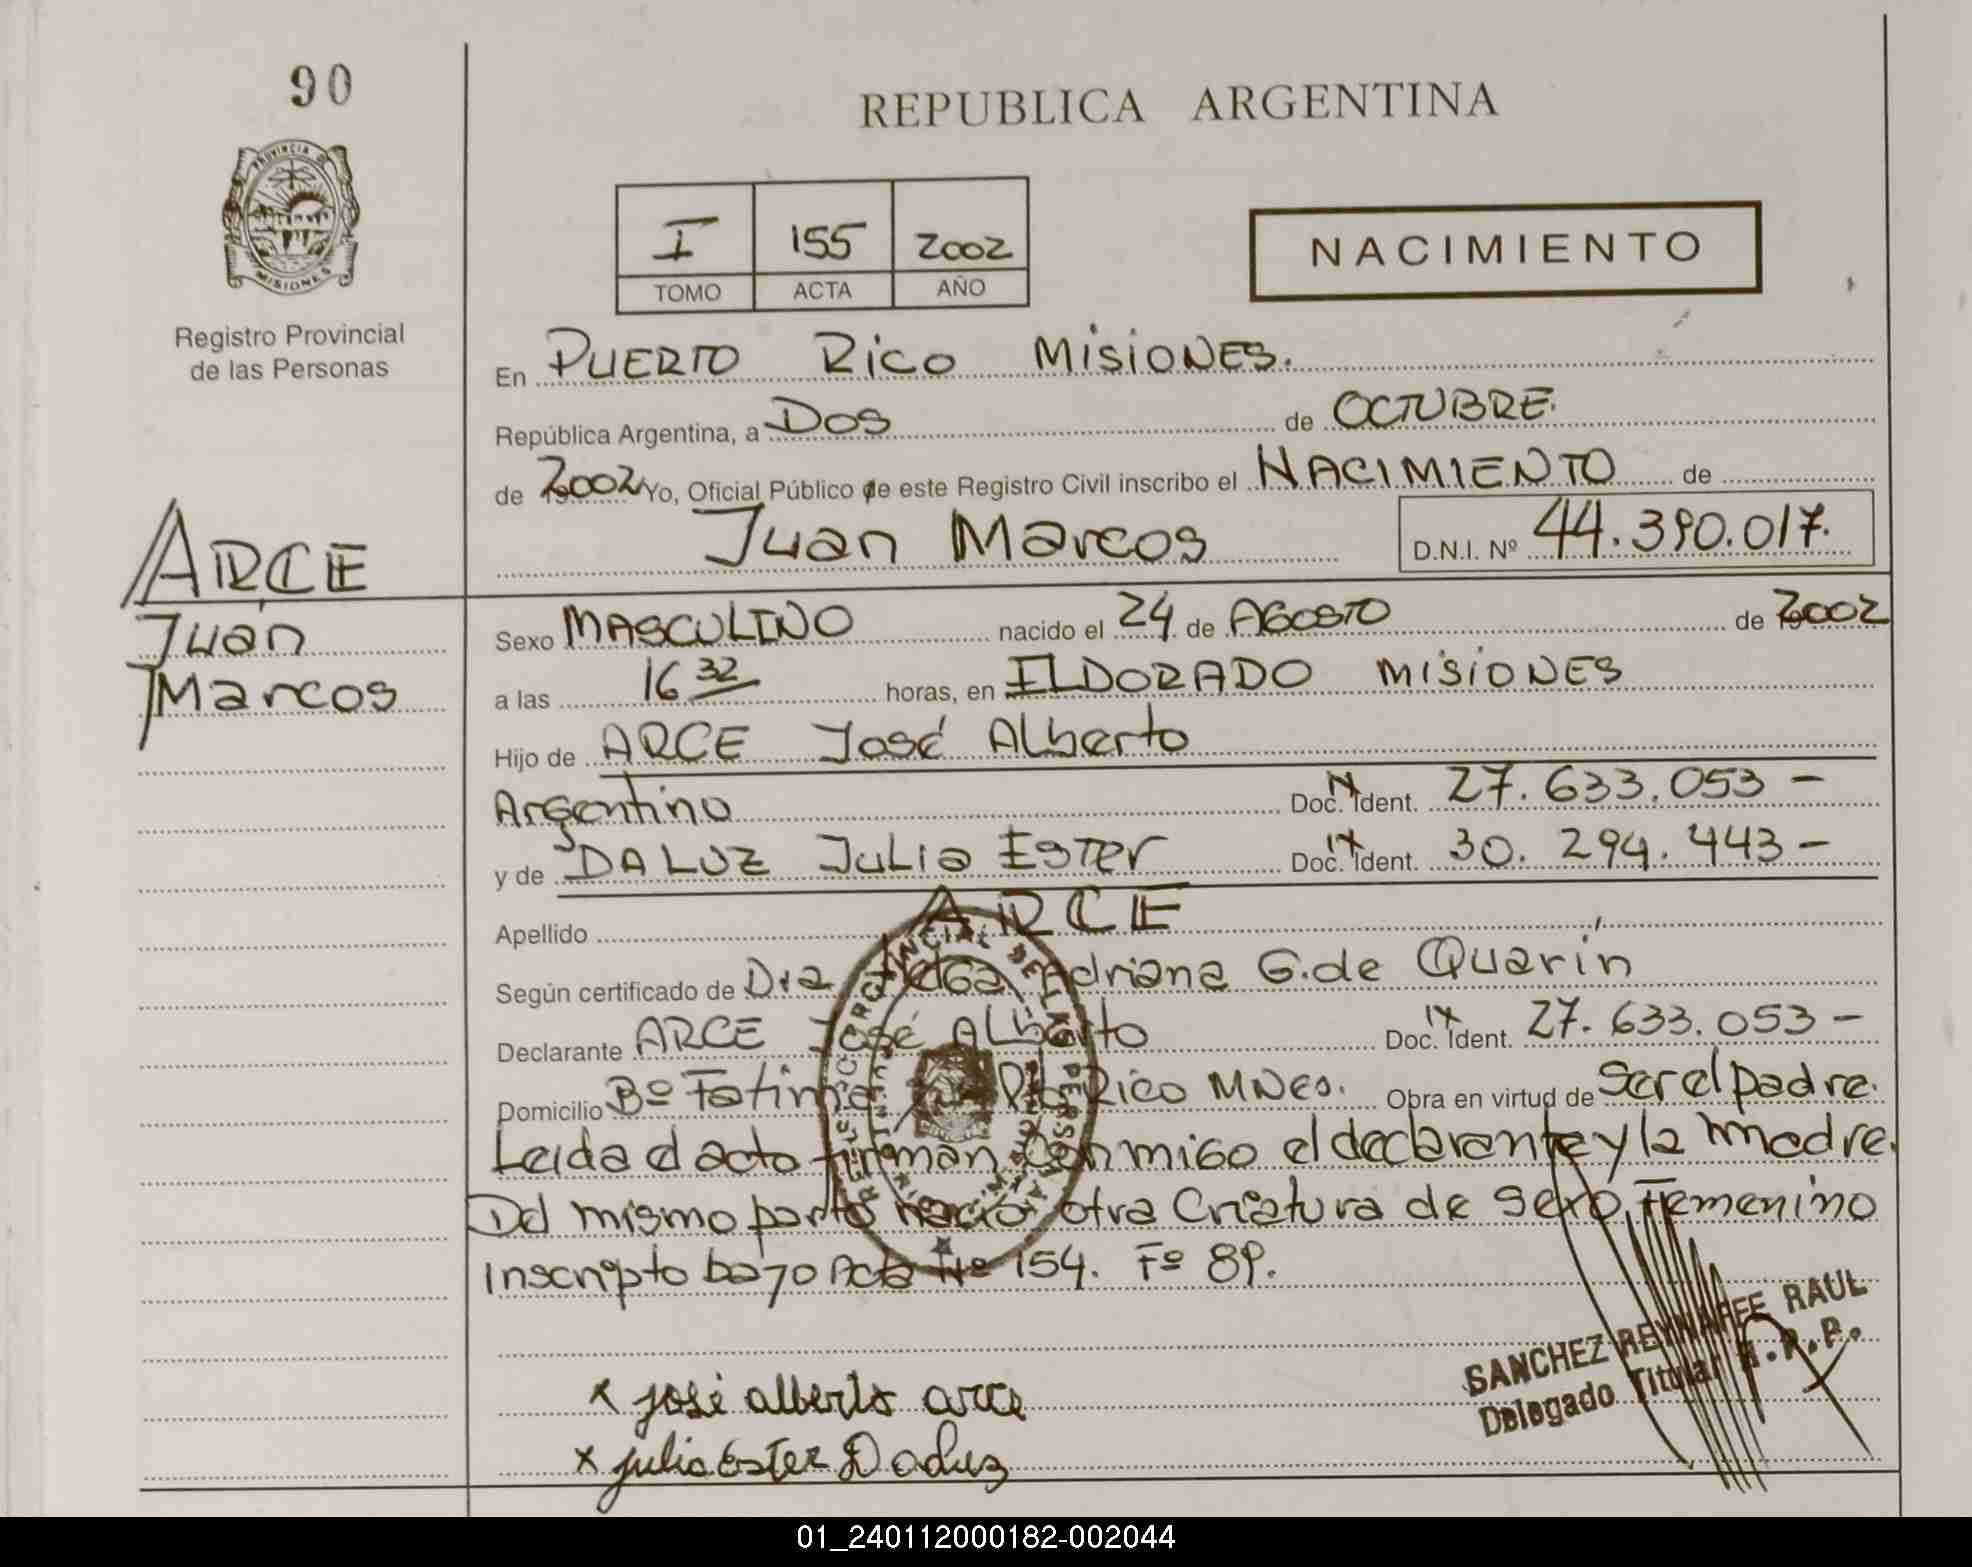 90
REPUBLICA ARGENTINA
PROVINCIA DE
MISIONES
Registro Provincial
de las Personas
I 155 2002
TOMO ACTA AÑO
NACIMIENTO
En PUERTO RICO MISIONES.
República Argentina, a DOS de OCTUBRE.
de 2002 Yo, Oficial Público de este Registro Civil inscribo el NACIMIENTO de
Juan Marcos D.N.I. Nº 44.390.017.
ARCE
Juan
Marcos
Sexo MASCULINO nacido el 24 de AGOSTO de 2002
a las 16 32 horas, en ELDORADO MISIONES
Hijo de ARCE José Alberto
Argentino Doc. Ident. 27.633.053 -
y de DA LUZ JULIA ESTER Doc. Ident. 30.294.443 -
Apellido ARCE
Según certificado de Dra Adriana G. de Quarin
Declarante ARCE José Alberto Doc. Ident. 27.633.053 -
Domicilio Bº Fatima Pto Rico MNES. Obra en virtud de Ser el padre.
Leida el acto firman conmigo el declarante y la madre.
Del mismo parto nacio otra Criatura de Sexo Femenino
inscripto bajo Acta Nº 154. Fº 89.
SANCHEZ REYNAFEE RAUL
Delegado Titular R.P.P.
x josé alberto arce
x julia Ester Da luz
01_240112000182-002044